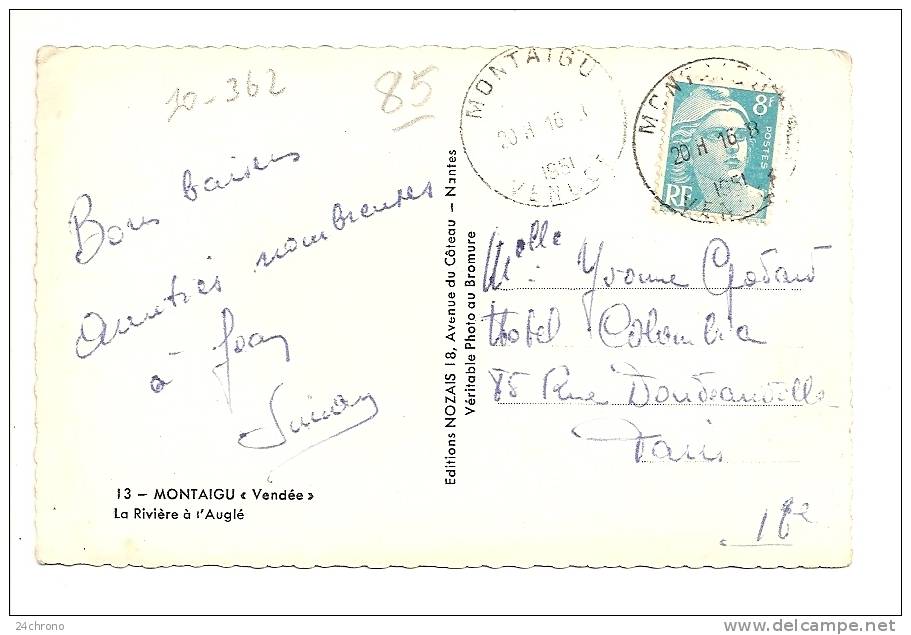 20-362
85
MONTAIGU
20 H 16
1951
VENDÉE
MONTAIGU
20 H 16
1951
8F
POSTES
RF
Bons baisers
Amitiés nombreuses
à
Melle Yvonne Godard
Hotel Colombia
85 Rue Doudeauville
Paris
18e
Editions NOZAIS 18, Avenue du Côteau — Nantes
Véritable Photo au Bromure
13 — MONTAIGU « Vendée »
La Rivière à l'Auglé
24chrono
delcampe.net